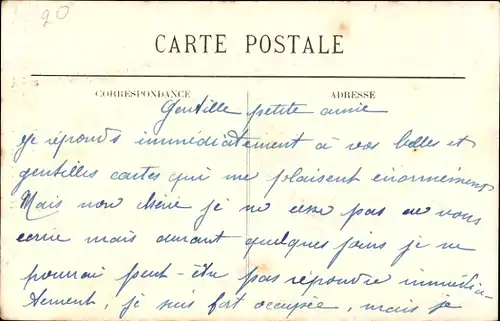 20
CARTE POSTALE
CORRESPONDANCE
ADRESSE
Gentille petite amie
Je réponds immédiatement à vos belles et
gentilles cartes qui me plaisent énormément
Mais non chérie je ne cesse pas de vous
écrire mais durant quelques jours je ne
pourrai peut-être pas répondre immédia-
tement, je suis fort occupée, mais je